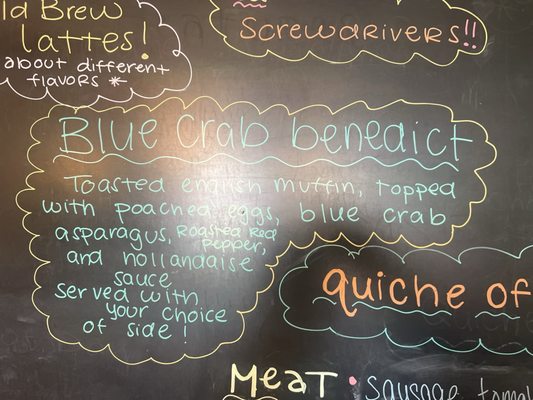 ld Brew
lattes!
about different
flavors *
Screwdrivers!!
Blue crab benedict
Toasted english muffin, topped
with poached eggs, blue crab
asparagus, Roasted Red
Pepper,
and hollandaise
sauce
served with
your choice
of side!
quiche of
Meat • sausage toma